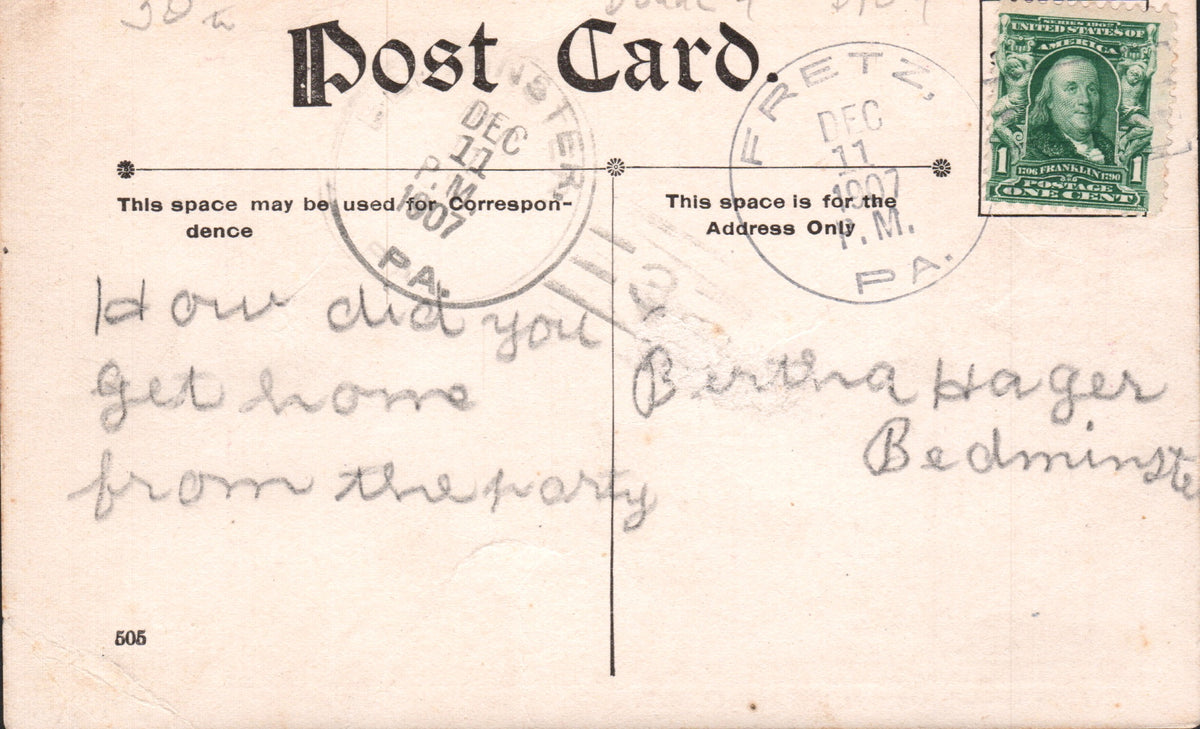 Post Card.
FRETZ,
DEC
11
1907
P.M.
PA.
DEC
11
P.M.
1907
PA.
SERIES 1902
UNITED STATES OF
AMERICA
1 1706 FRANKLIN 1790 1
POSTAGE
ONE CENT
This space may be used for Correspon-
dence
This space is for the
Address Only
How did you
Get home
from the party
Bertha Hager
Bedminste
505